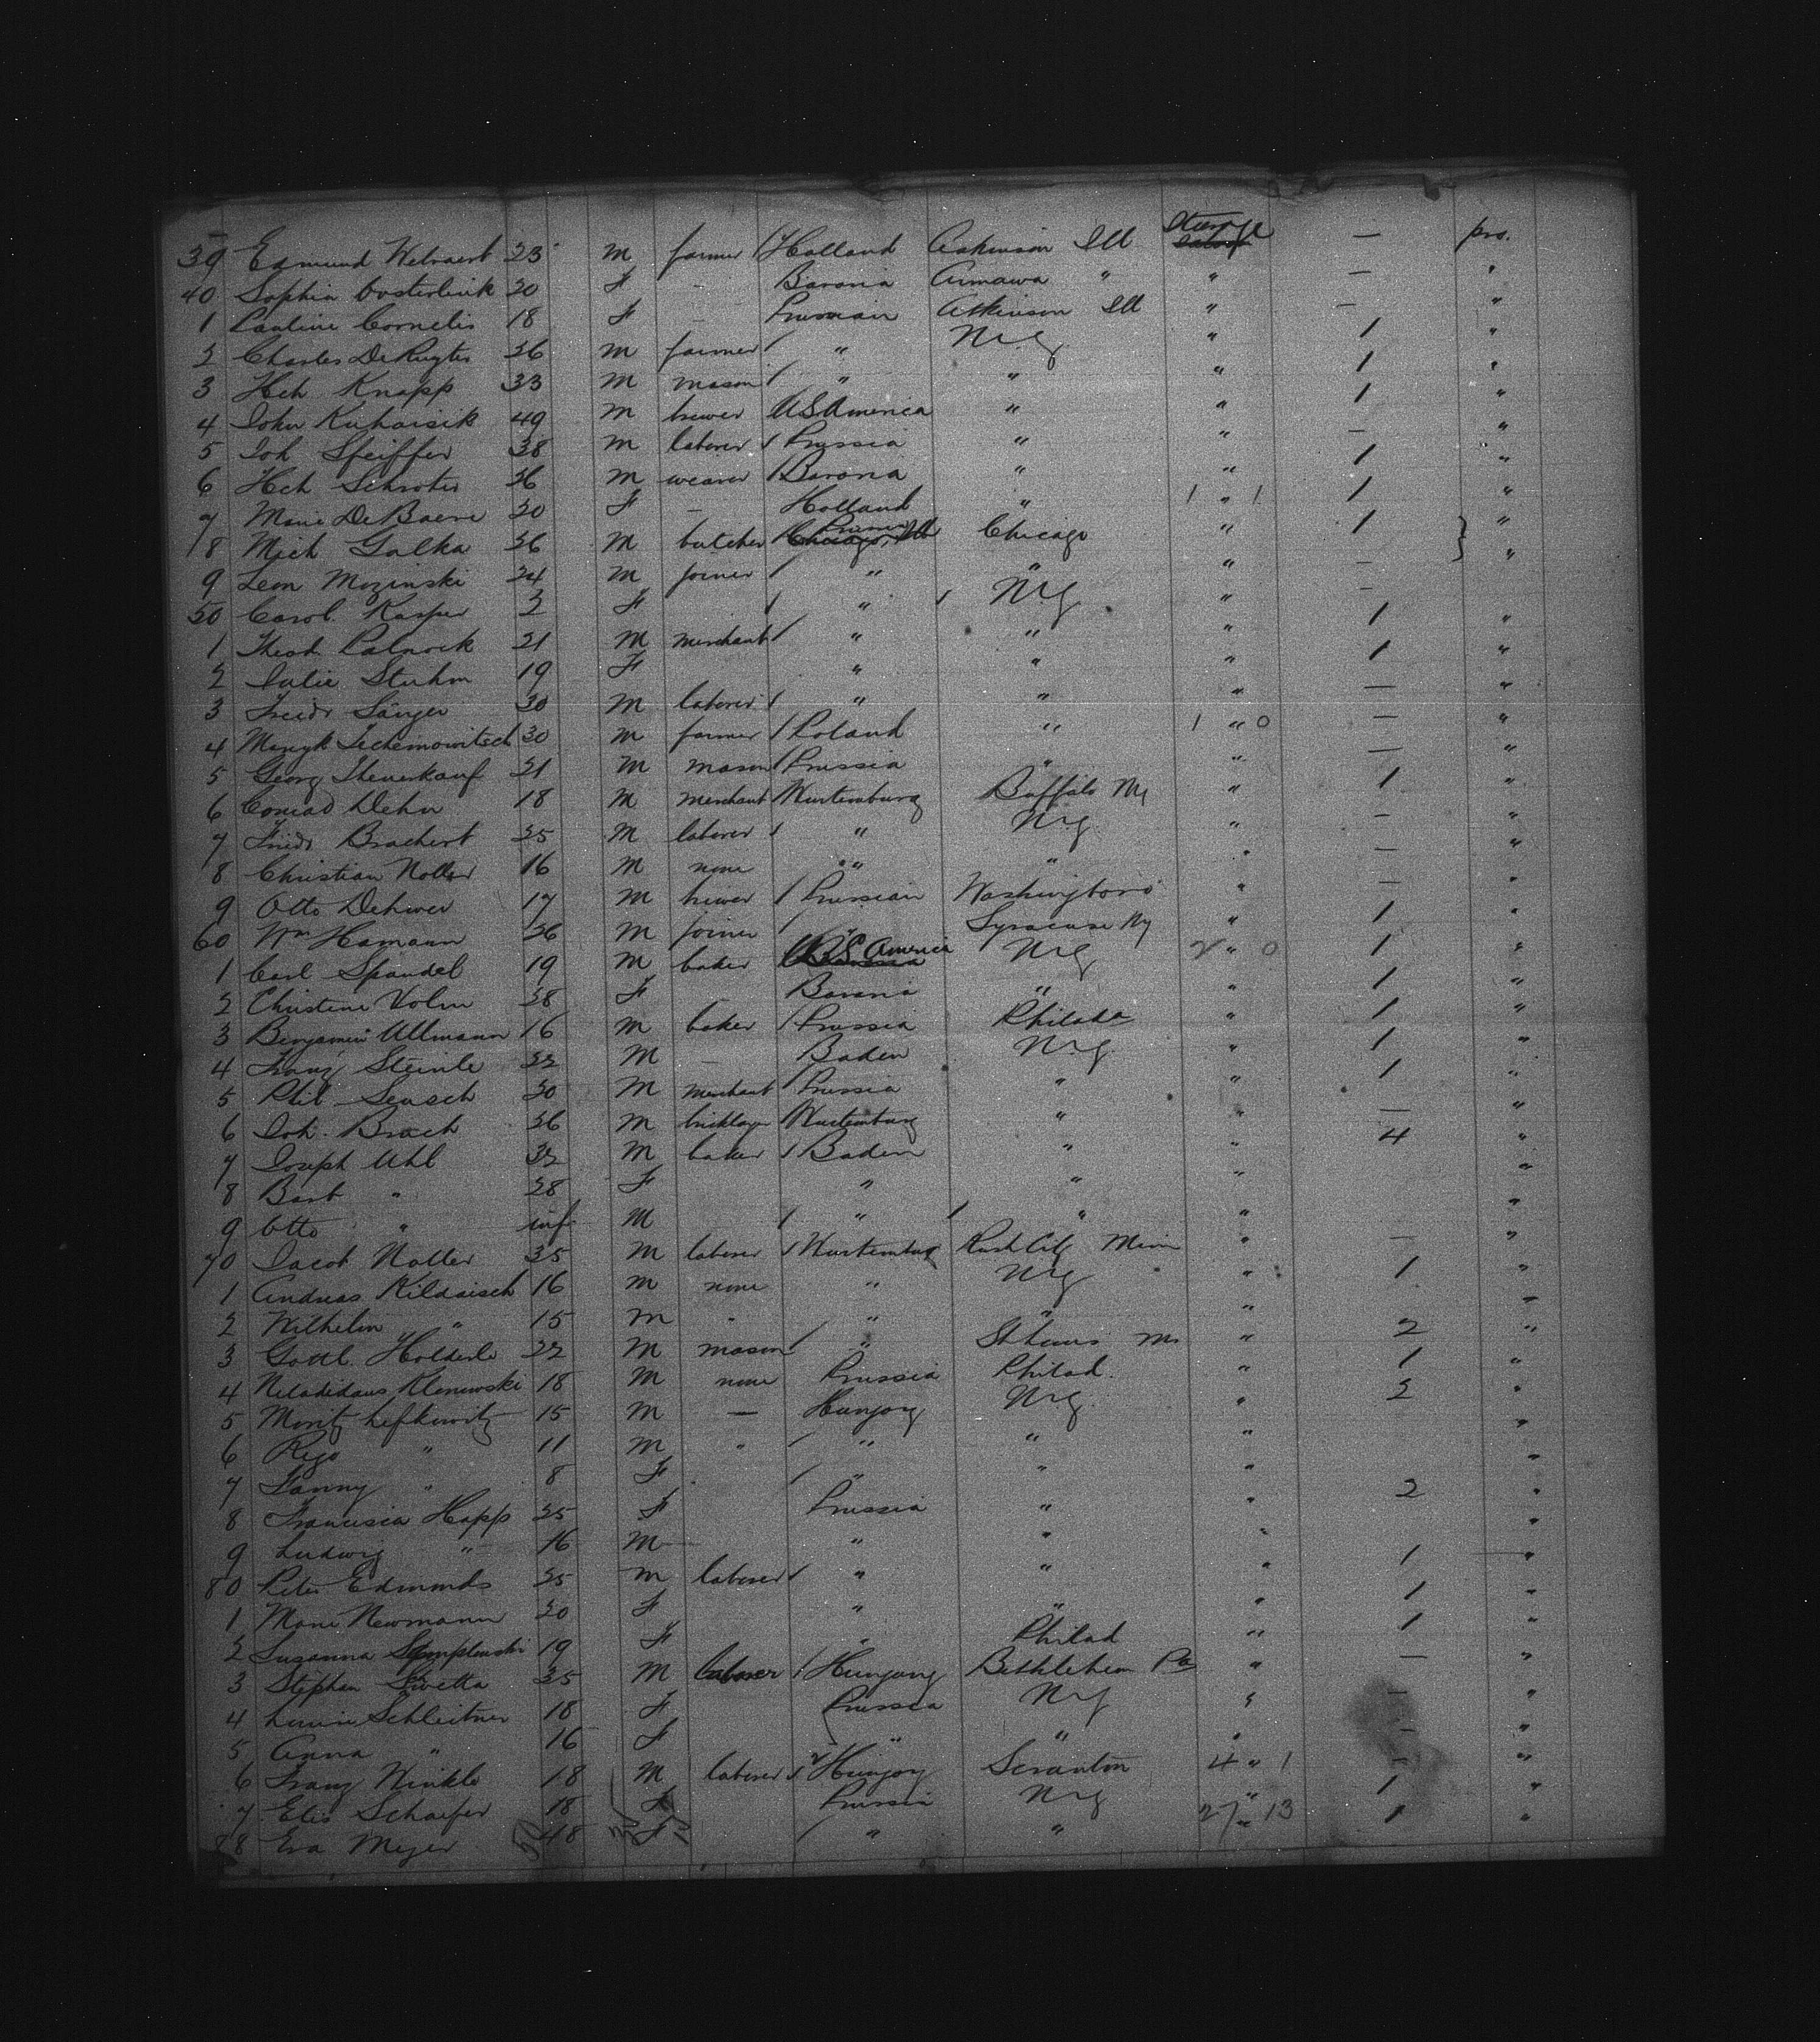 39 Edmund Welvaert 23 M farmer / Holland Atkinson Ill Steerage — pro.
40 Sophia Oosterlink 20 F - Bavaria Annawa " " — "
1 Pauline Cornelis 18 F - Prussian Atkinson Ill " — "
2 Charles DeRuyter 26 M farmer / " N.Y. " 1 "
3 Hch Knapp 33 M mason / " " " 1 "
4 John Kuhaisik 49 M brewer U S America " " 1 "
5 Joh Pfeiffer 38 M laborer / Prussia " " — "
6 Hch Schroter 26 M weaver / Bavaria " " 1 "
7 Marie DeBaere 20 F - Holland " 1 " 1 1 "
8 Mich Galka 26 M butcher / Prussia Chicago " 1 "
9 Leon Mozinski 24 M joiner / " " " — "
50 Carol. Kasper 2 F / " / N.Y. " —
1 Theod. 21 M merchant / " " " 1 "
2 Julie Stuhm 19 F " " " 1 "
3 Friedr Sänger 30 M laborer / " " " — "
4 30 M farmer / Poland " 1 " 0 — "
5 Georg Theuerkauf 21 M mason / Prussia " " — "
6 Conrad Dehn 18 M merchant / Wurtemburg Buffalo NY " 1 "
7 Friedr Brachert 25 M laborer / " N.Y. " — "
8 Christian Notter 16 M none " " " — "
9 Otto Dehwer 17 M brewer / Prussian Washington " — "
60 Wm Hamann 26 M joiner / " Syracuse NY " 1 "
1 Carl Spandel 19 M baker U S America N.Y. 2 " 0 1 "
2 Christine Volm 28 F Bavaria " " 1 "
3 Benjamin Ullmann 16 M baker / Prussia Philada " 1 "
4 Franz Steinle 22 M — Baden N.Y. " 1 "
5 Phil Sensch 20 M merchant / Prussia " " 1 "
6 Joh. Brach 26 M bricklayer Wurtemburg " " — "
7 Joseph Uhl 32 M baker / Baden " " 4 "
8 Barb " 28 F " " " "
9 Otto " inf M / " / " " "
70 Jacob Notter 35 M laborer / Wurtemburg Rush City Minn " — "
1 Andreas Kildaisch 16 M none " N.Y. " 1 "
2 Wilhelm " 15 M " " " " "
3 Gottl. Holderle 22 M mason / " St Louis Mo " 2 "
4 Klenowski 18 M none Prussia Philad. " 1 "
5 Moritz Lefkowitz 15 M — Hungary N.Y. " 2 "
6 " 11 M " / " " " "
7 Fanny " 8 F / " " " "
8 Francisca Happ 25 F Prussia " " 2 "
9 Ludwig " 16 M " " " "
80 Peter Edmunds 25 M laborer / " " " 1 "
1 Marie Newmann 20 F " " " 1 "
2 Susanna 19 F " Philad " 1 "
3 Stephan Sivetta 25 M laborer / Hungary Bethlehem Pa " — "
4 Louise Schleitner 18 F Prussia N.Y. " — "
5 Anna " 16 F " " " — "
6 Franz Winkle 18 M laborer / Hungary Scranton 4 " 1 — "
7 Elis Schaefer 18 F Prussia N.Y. " 1 "
88 Eva Meyer 48 F / " " 27 " 13 1 "